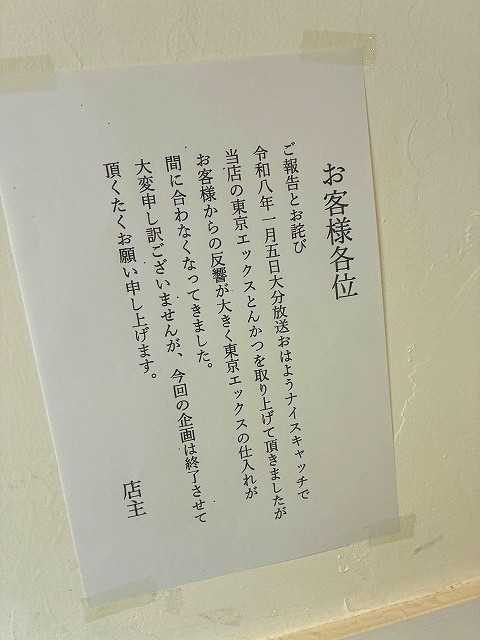 お客様各位
ご報告とお詫び
令和八年一月五日大分放送おはようナイスキャッチで
当店の東京エックスとんかつを取り上げて頂きましたが
お客様からの反響が大きく東京エックスの仕入れが
間に合わなくなってきました。
大変申し訳ございませんが、今回の企画は終了させて
頂くたくお願い申し上げます。
店主